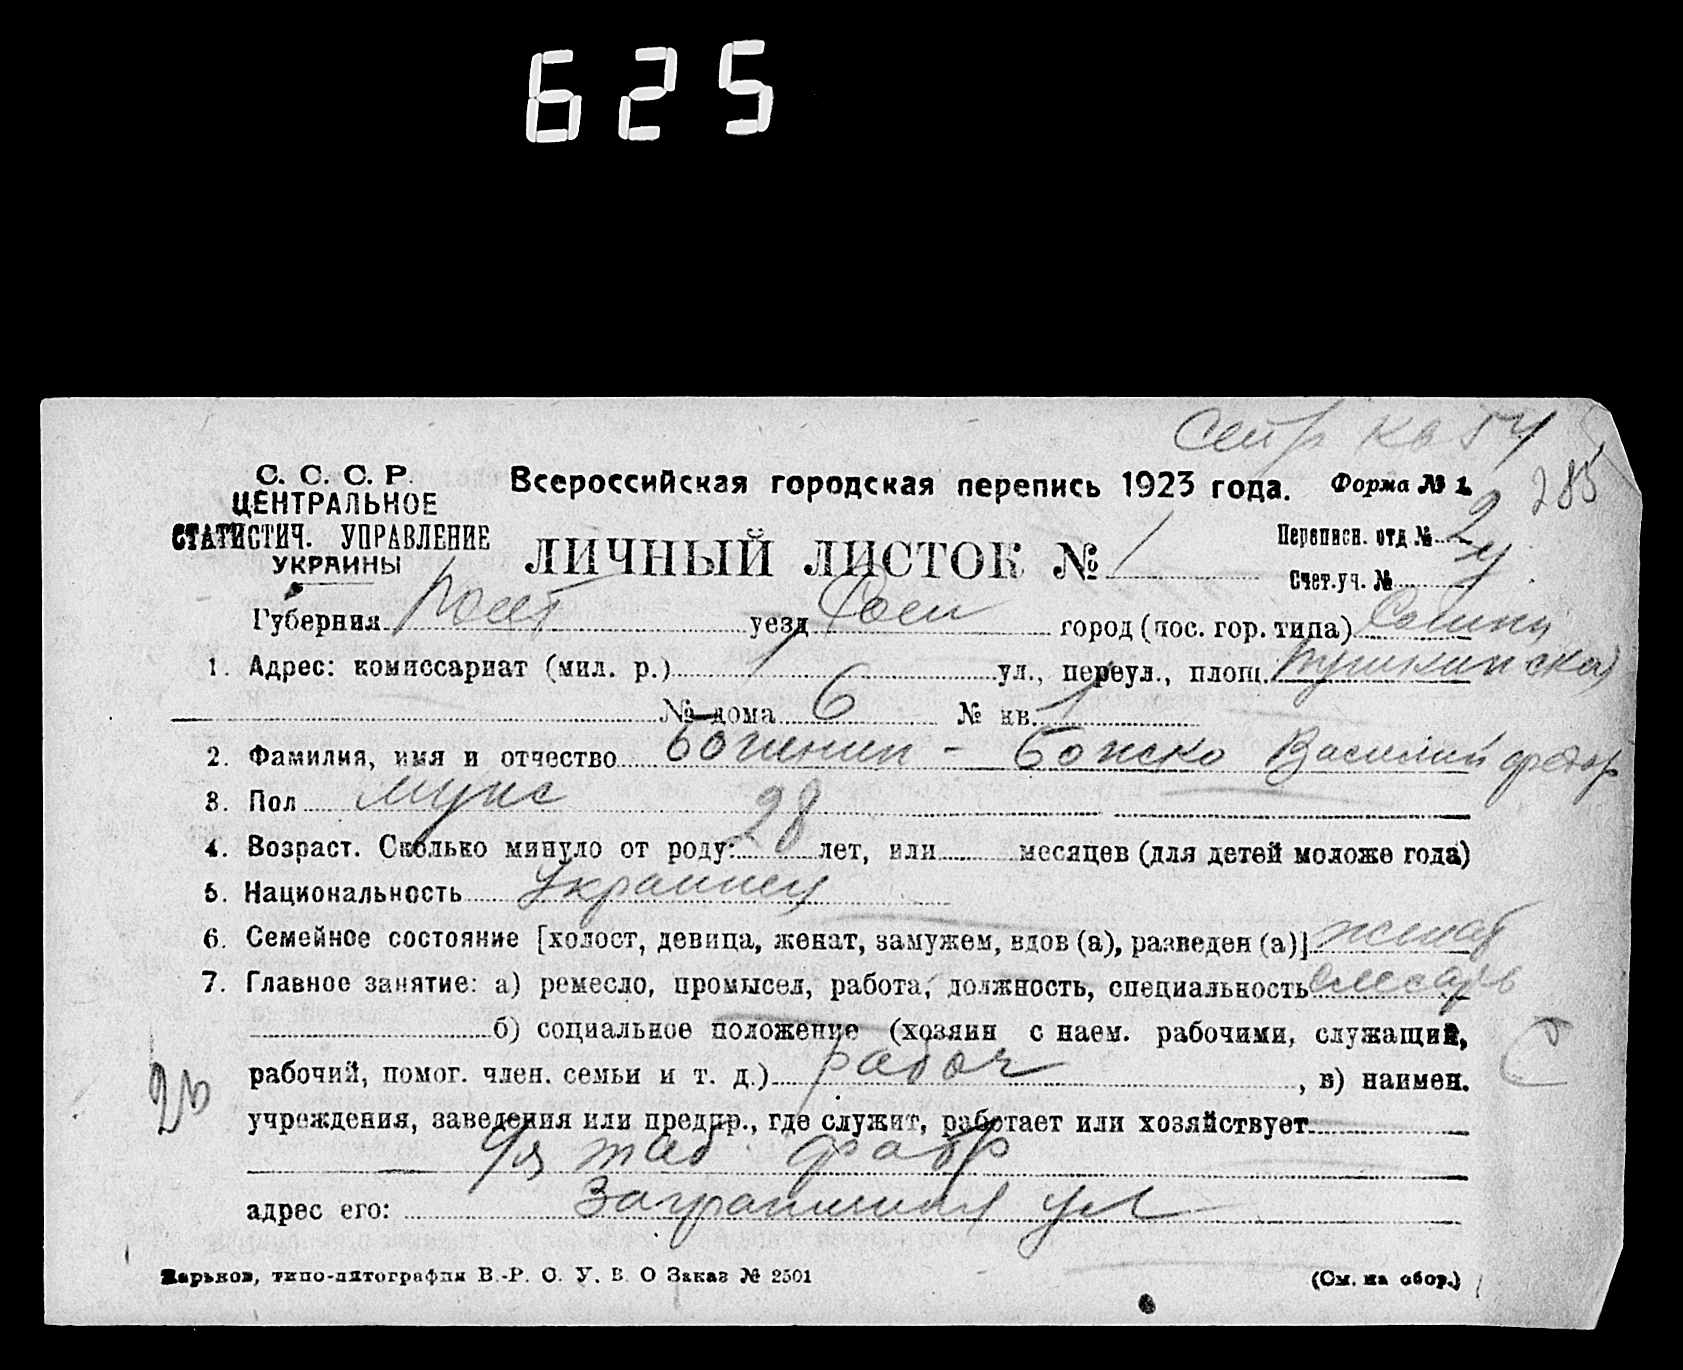 625
285
С. С. С. Р.
ЦЕНТРАЛЬНОЕ
СТАТИСТИЧ. УПРАВЛЕНИЕ
УКРАИНЫ
Всероссийская городская перепись 1923 года. Форма № 1.
ЛИЧНЫЙ ЛИСТОК № 1
Переписн. отд № 2
Счет.уч. № 4
Губерния уезд город (пос. гор. типа)
1. Адрес: комиссариат (мил. р.) 1 ул., переул., площ. Пушкинская
№ дома 6 № кв. 1
2. Фамилия, имя и отчество - Божко Василий Федор
3. Пол мужс
4. Возраст. Сколько минуло от роду: 28 лет, или месяцев (для детей моложе года)
5. Национальность Украинец
6. Семейное состояние [холост, девица, женат, замужем, вдов (а), разведен (а)] женат
7. Главное занятие: а) ремесло, промысел, работа, должность, специальность слесарь
б) социальное положение (хозяин с наем. рабочими, служащий,
рабочий, помог. член. семьи и т. д.) рабоч , в) наимен.
учреждения, заведения или предпр., где служит, работает или хозяйствует
таб фабр
адрес его: ул
Харьков, типо-литография В.-Р. О. У. В. О Заказ № 2501 (См. на обор.)